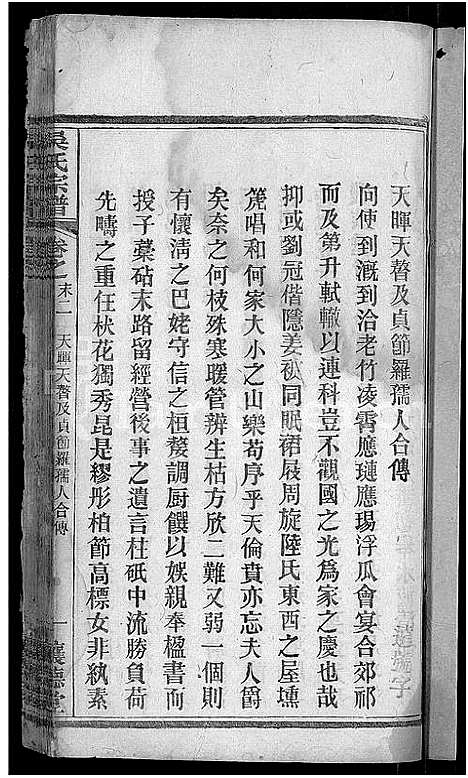 天暉天瞽及貞節羅孺人合傳
向使到溉到洽老竹凌霄應璉應瑒浮瓜會宴合郊祁
而及第升軾轍以連科豈不觀國之光爲家之慶也哉
抑或劉冠偕隱姜袚同眠裙屐周旋陸氏東西之屋壎
箎唱和何家大小之山樂苟序乎天倫賁亦忘夫人爵
矣奈之何枝殊寒暖管辨生枯方欣二難又弱一個則
有懷淸之巴姥守信之桓嫠調厨饌以娛親奉楹書而
授子藁砧末路留經營後事之遺言柱砥中流勝負荷
先疇之重任林花獨秀昆是繆彤柏節高標女非紈素
吳氏宗譜
卷之
末二
天暉天瞽及貞節羅孺人合傳
一
讓德堂